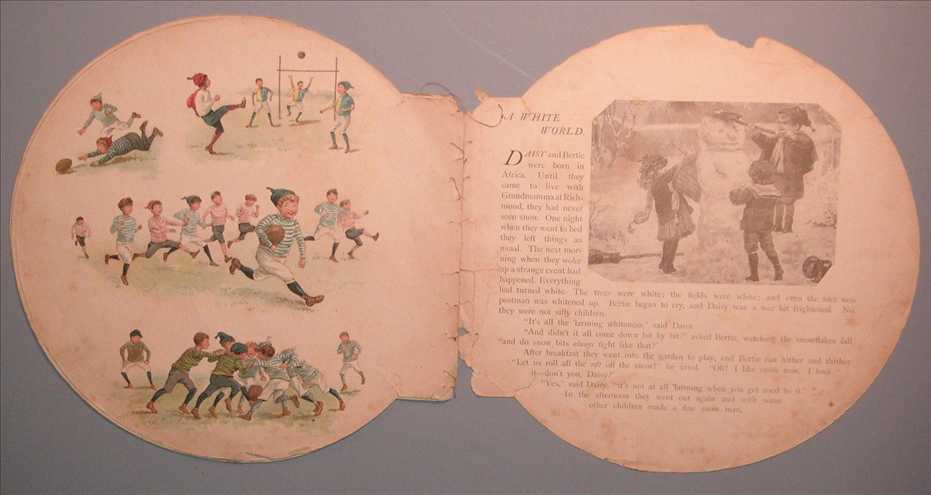 A WHITE
WORLD.
DAISY and Bertie
were born in
Africa. Until they
came to live with
Grandmamma at Rich-
mond, they had never
seen snow. One night
when they went to bed
they left things as
usual. The next mor-
ning when they woke
up a strange event had
happened. Everything
had turned white. The trees were white; the fields were white; and even the
postman was whitened up. Bertie began to cry, and Daisy was a wee bit frightened. No,
they were not silly children.
"It's all the 'larming whiteness," said Daisy.
"And didn't it all come down bit by bit?" asked Bertie, watching the snowflakes fall,
"and do snow bits always fight like that?"
After breakfast they went into the garden to play, and Bertie ran hither and thither.
"Let us roll all the off the snow!" he cried. "Oh! I like snow now, I love
it—don't you, Daisy?"
"Yes," said Daisy, "it's not at all 'larming when you get used to it."
In the afternoon they went out again and with some
other children made a fine snow man.